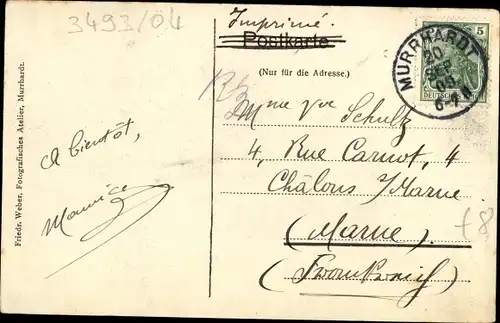 3493/04
Imprimé.
Postkarte
(Nur für die Adresse.)
5
DEUTSCHES
MURRHARDT
20
SEP
05
6-7 N
Mme Vve Schulz
4, Rue Carnot, 4
Châlons s/Marne
(Marne)
(Frankreich)
à bientôt,
Maurice
Friedr. Weber, Fotografisches Atelier, Murrhardt.